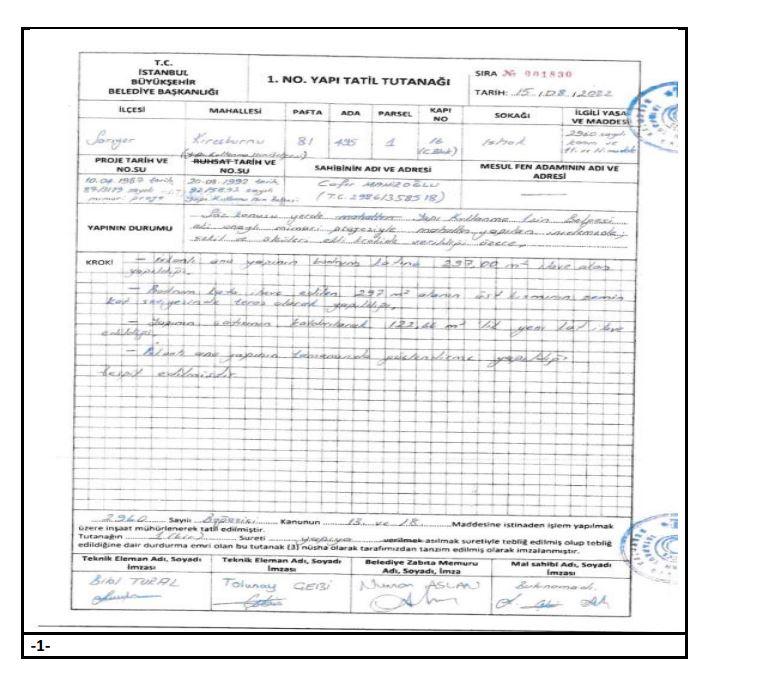 T.C.
İSTANBUL
BÜYÜKŞEHİR
BELEDİYE BAŞKANLIĞI
1. NO. YAPI TATİL TUTANAĞI
SIRA № 001830
TARİH: 15/08/2022
İLÇESİ MAHALLESİ PAFTA ADA PARSEL KAPI NO SOKAĞI İLGİLİ YASA VE MADDESİ
Sarıyer Kireçburnu 81 495 1 16 (C Blok) 2960 sayılı kanun ve
PROJE TARİH VE NO.SU RUHSAT TARİH VE NO.SU SAHİBİNİN ADI VE ADRESİ MESUL FEN ADAMININ ADI VE ADRESİ
(Yapı Kullanma İzin Belgesi)
10.04.1987 tarih 20.03.1992 tarih Cafer
87/3179 sayılı 92/5893 sayılı
mimari proje Yapı Kullanma İzin Belgesi
YAPININ DURUMU
Söz konusu yerde mahallen Yapı Kullanma İzin Belgesi
eki onaylı mimari projesiyle mahallen yapılan incelemede;
şekil ve ölçüleri ekli krokide verildiği üzere,
KROKİ
- ana yapının bodrum katına 297,00 m² ilave alan
yapıldığı,
- Bodrum kata ilave edilen 297 m² alanın üst kısmının zemin
kat seviyesinde teras olarak yapıldığı,
- Yapının çatısının kaldırılarak 123,66 m² lik yeni kat ilave
edildiği,
- ana yapının tamamında güçlendirme yapıldığı
tespit edilmiştir
2960 Sayılı Boğaziçi Kanunun 13. ve 18. Maddesine istinaden işlem yapılmak
üzere inşaat mühürlenerek tatil edilmiştir.
Tutanağın 1 (bir) Sureti yapıya verilmek asılmak suretiyle tebliğ edilmiş olup tebliğ
edildiğine dair durdurma emri olan bu tutanak (3) nüsha olarak tarafımızdan tanzim edilmiş olarak imzalanmıştır.
Teknik Eleman Adı, Soyadı İmzası Teknik Eleman Adı, Soyadı İmzası Belediye Zabıta Memuru Adı, Soyadı, İmza Mal sahibi Adı, Soyadı İmzası
TURAL Tolunay GEBİ ASLAN Bulunamadı.
-1-